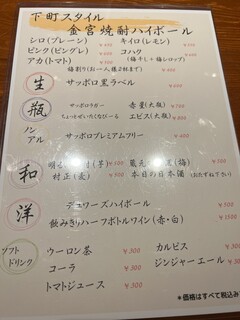 下町スタイル
金宮焼酎ハイボール
シロ(プレーン) ¥400 キイロ(レモン) ¥450
ピンク(ピングレ) ¥450 コハク ¥450
アカ(トマト) ¥450 (梅干し+梅シロップ)
生 サッポロ黒ラベル
瓶 サッポロラガー 赤星(大瓶) ¥700
ちょっとぜいたくなびーる エビス(大瓶)
ノンアル サッポロプレミアムフリー
和
村正(麦) ¥500 本日の日本酒(おたずね下さい)
洋 デュワーズハイボール ¥500
飲みきりハーフボトルワイン(赤・白)
ソフトドリンク ウーロン茶 ¥300 カルピス ¥300
コーラ ¥300 ジンジャーエール ¥300
トマトジュース ¥300
*価格はすべて税込み